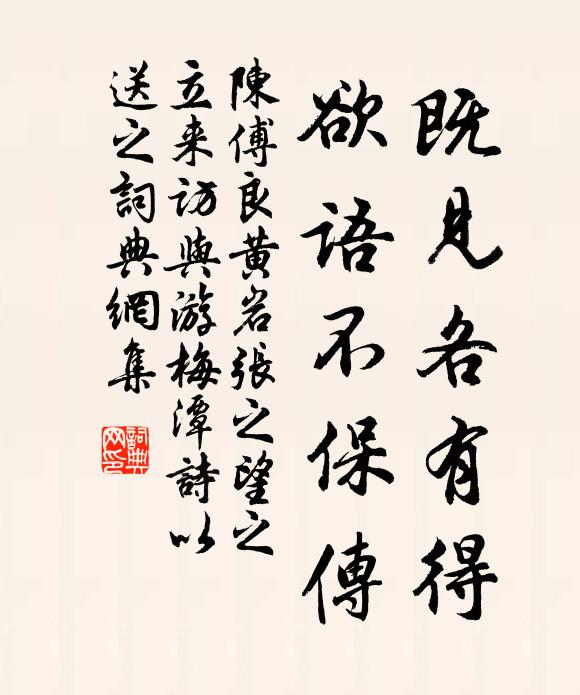 既見各有得
欲語不保傳
陳傅良黃岩張之望之
立来訪與游梅潭詩以
送之詞典網集
詞典網印